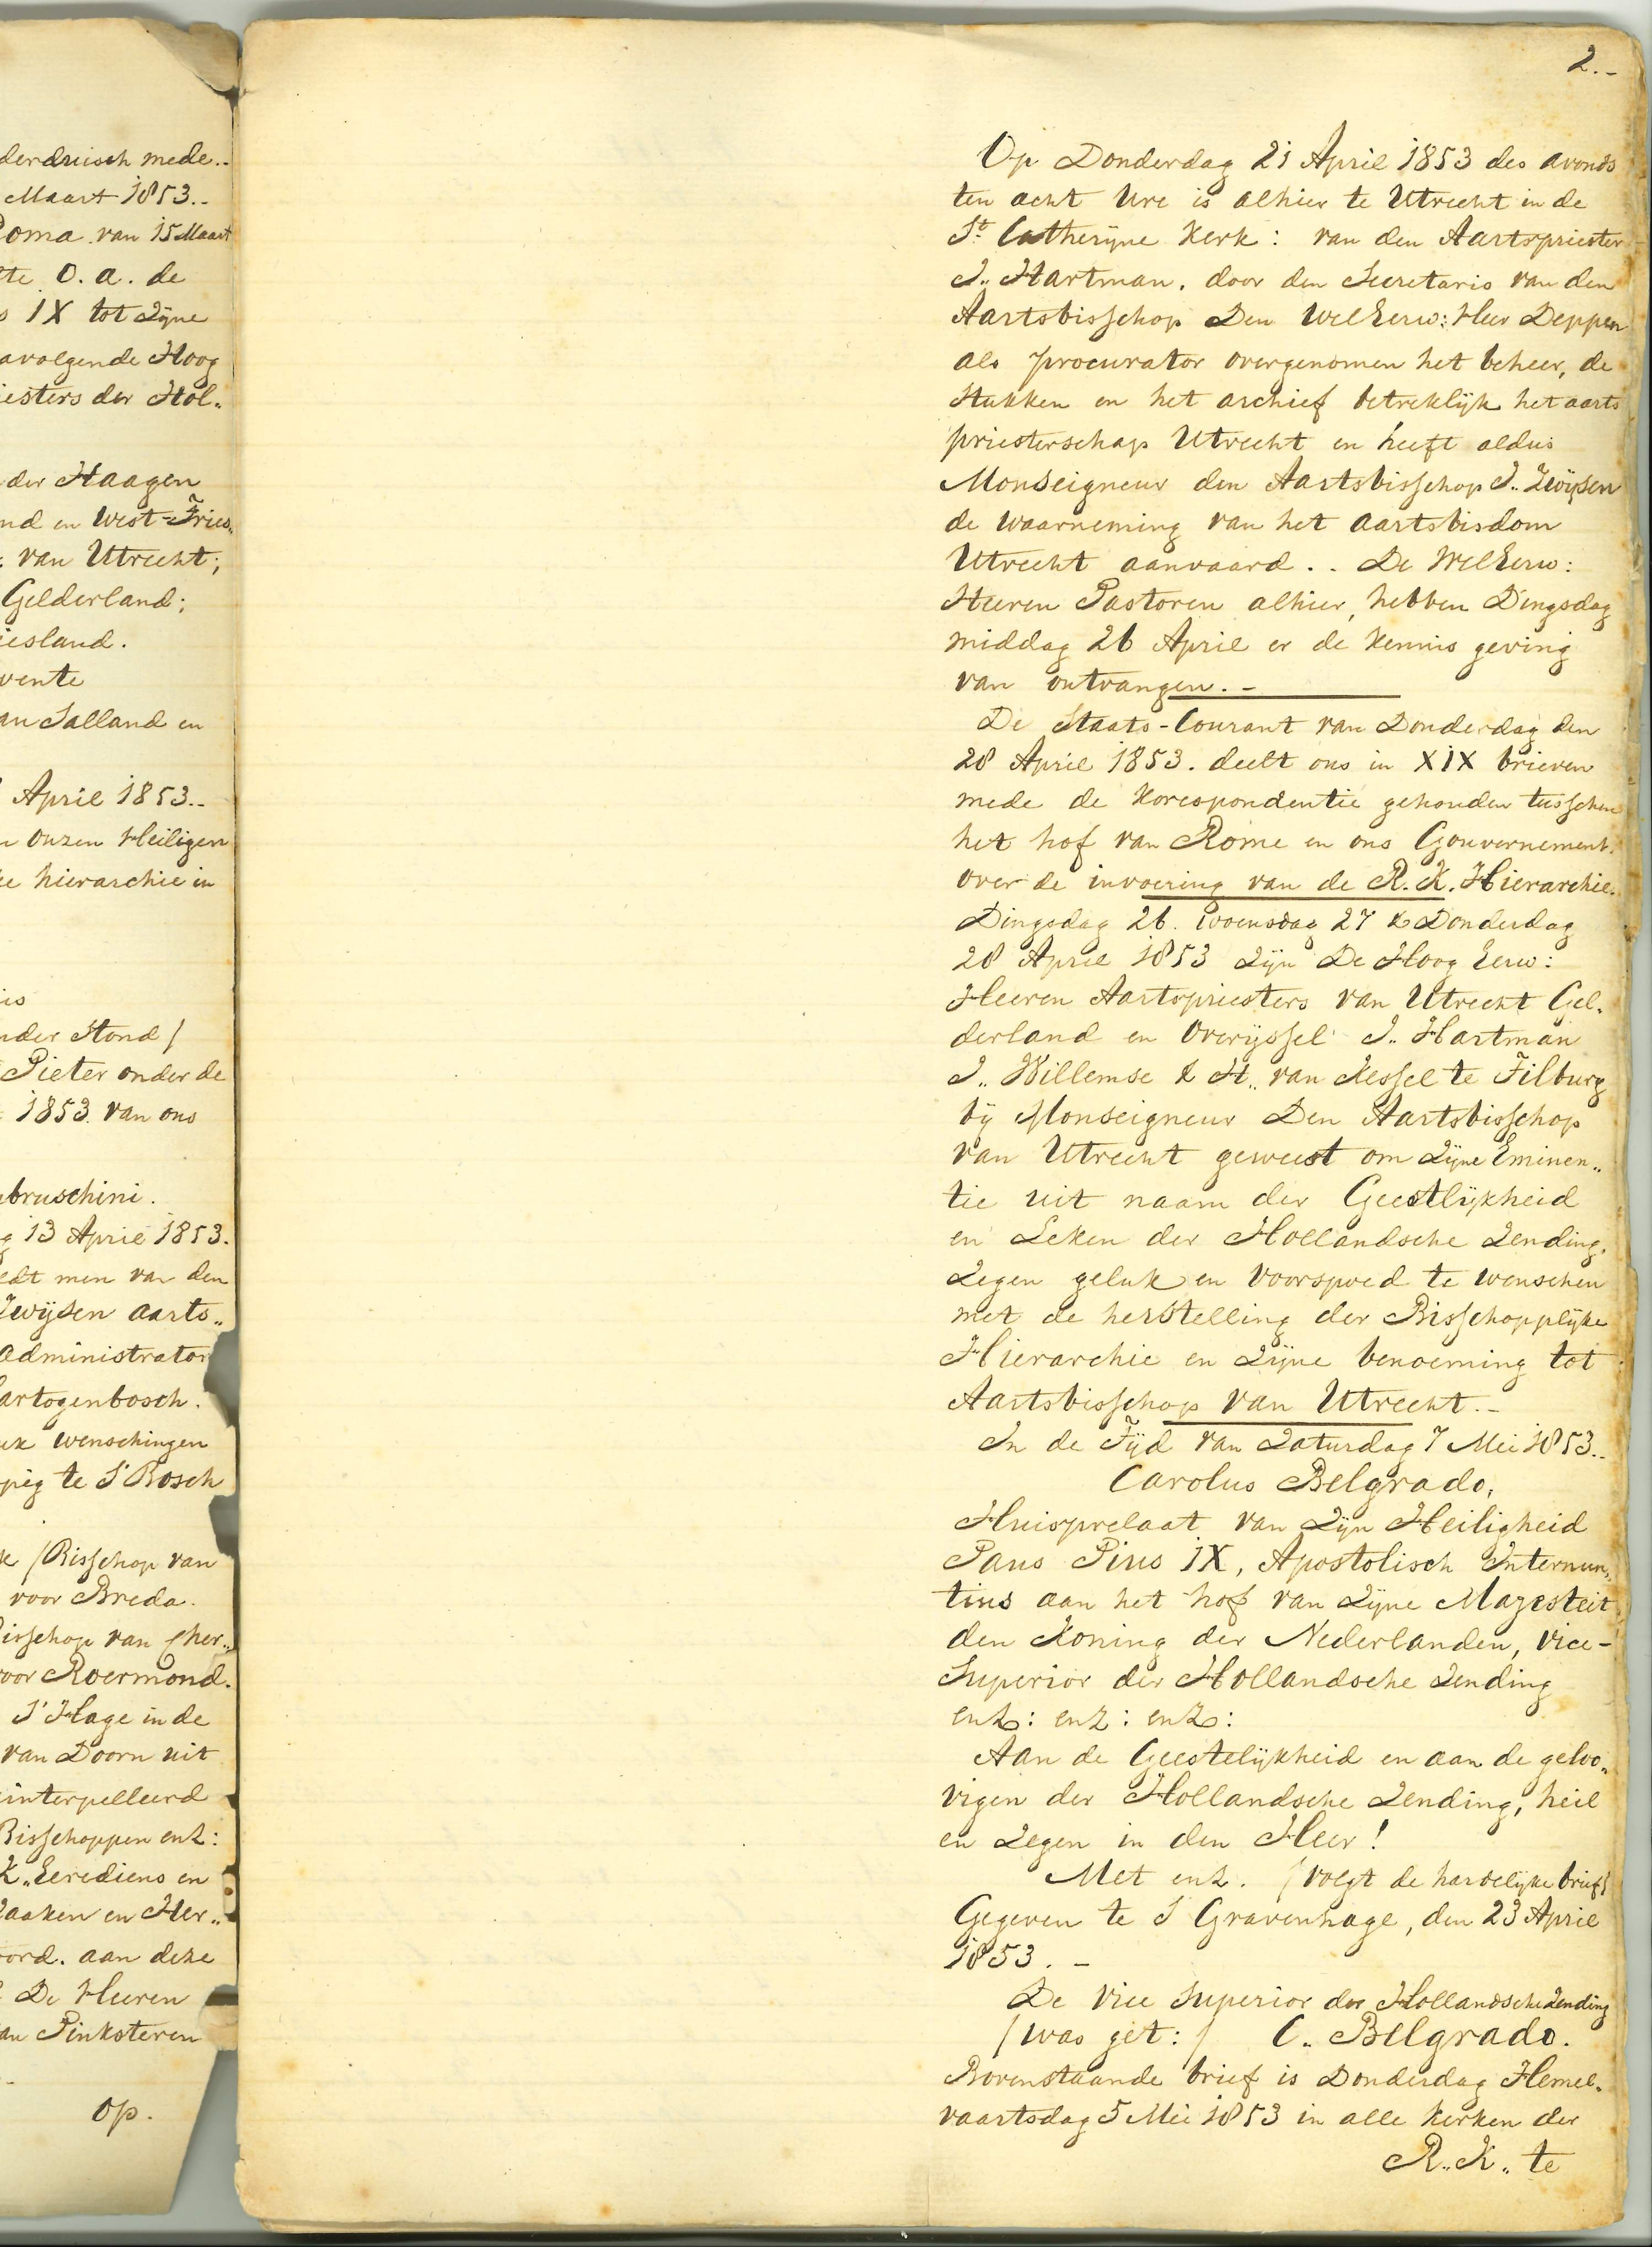 derduisch mede..
Maart 1853..
Roma van 15 Maart
tte O. a. de
IX tot Zyne
avolgende Hoog
iesters der Hol„
der Haagen
nd en West=Fries„
van Utrecht;
Gelderland;
iesland.
vente
an Salland en
April 1853..
onzen Heiligen
hierarchie in
nder Stond /
Pieter onder de
1853. van ons
bruschini.
13 April 1853.
edt men van den
Zwijsen aarts„
administrator
artogenbosch.
uk wenschingen
pig te S'Bosch
/ Bisschop van
voor Breda.
isschop van Cher„
voor Roermond.
S'Hage in de
van Doorn uit
interpelleerd
Bisschoppen enz:
K„ Eerediens en
Zaaken en Her„
oord. aan deze
De Heeren
an Pinksteren
op.
2.-
Op Donderdag 21 April 1853 des avonds
ten acht Ure is alhier te Utrecht in de
St. Catherijne Kerk: van den Aartspriester
J„ Hartman. door den Secretaris van den
Aartsbisschop Den WelEerw: Heer Deppen
als procurator overgenomen het beheer, de
Stukken en het archief betreklijk het aarts
priesterschap Utrecht en heeft aldus
Monseigneur den Aartsbisschop J„ Zwijsen
de waarneming van het aartsbisdom
Utrecht aanvaard . . De WelEerw:
Heeren Pastoren alhier, hebben Dingsdag
middag 26 April er de kennis geving
van ontvangen. -
De Staats-Courant van Donderdag den
28 April 1853. deelt ons in XIX brieven
mede de Korespondentie gehouden tusschen
het hof van Rome en ons Gouvernement.
over de invoering van de R. K. Hierarchie.
Dingsdag 26. Woensdag 27 & Donderdag
28 April 1853 Zijn De Hoog Eerw:
Heeren Aartspriesters van Utrecht Gel„
derland en Overijssel J„ Hartman
J„ Willemse & H„ van Kessel te Tilburg
bij Monseigneur Den Aartsbisschop
van Utrecht geweest om Zijne Eminen„
tie uit naam der Geestlijkheid
en Leken der Hollandsche Zending.
Zegen geluk en voorspoed te wenschen
met de herstelling der Bisschopplijke
Hierarchie en Zijne benoeming tot
Aartsbisschop van Utrecht.-
In de Tijd van Zaturdag 7 Mei 1853..
Carolus Belgrado,
Huisprelaat van Zijn Heiligheid
Paus Pius IX, Apostolisch Internun„
tius aan het hof van Zijne Magesteit
den Koning der Nederlanden, vice-
Superior der Hollandsche Zending
enz: enz: enz:
Aan de Geestelijkheid en aan de geloo„
vigen der Hollandsche Zending, heil
en Zegen in den Heer!
Met enz. / volgt de hartelijke brief /
Gegeven te S Gravenhage, den 23 April
1853. -
De Vice Superior der Hollandsche Zending
/ was get: / C„ Belgrado.
Bovenstaande brief is Donderdag Hemel„
vaartsdag 5 Mei 1853 in alle kerken der
R„ K„ te